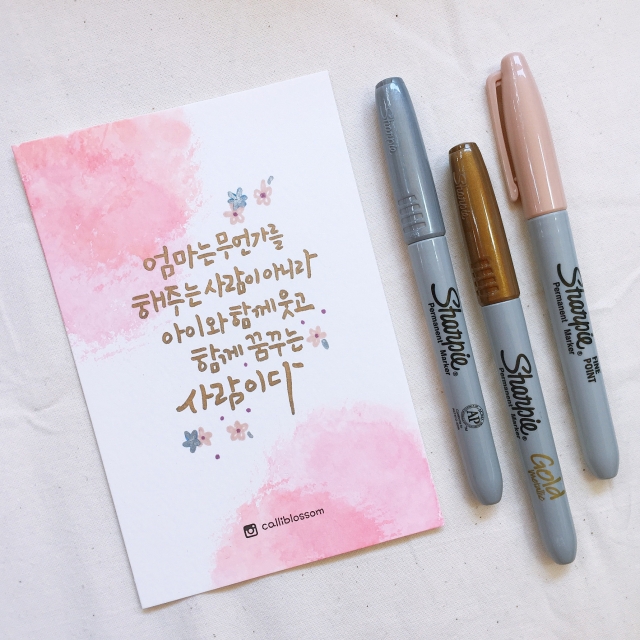 엄마는 무언가를
해주는 사람이 아니라
아이와 함께 웃고
함께 꿈꾸는
사람이다
calliblossom
Sharpie
Permanent Marker
Sharpie
Permanent Marker
Gold
Sharpie
Permanent Marker
FINE POINT